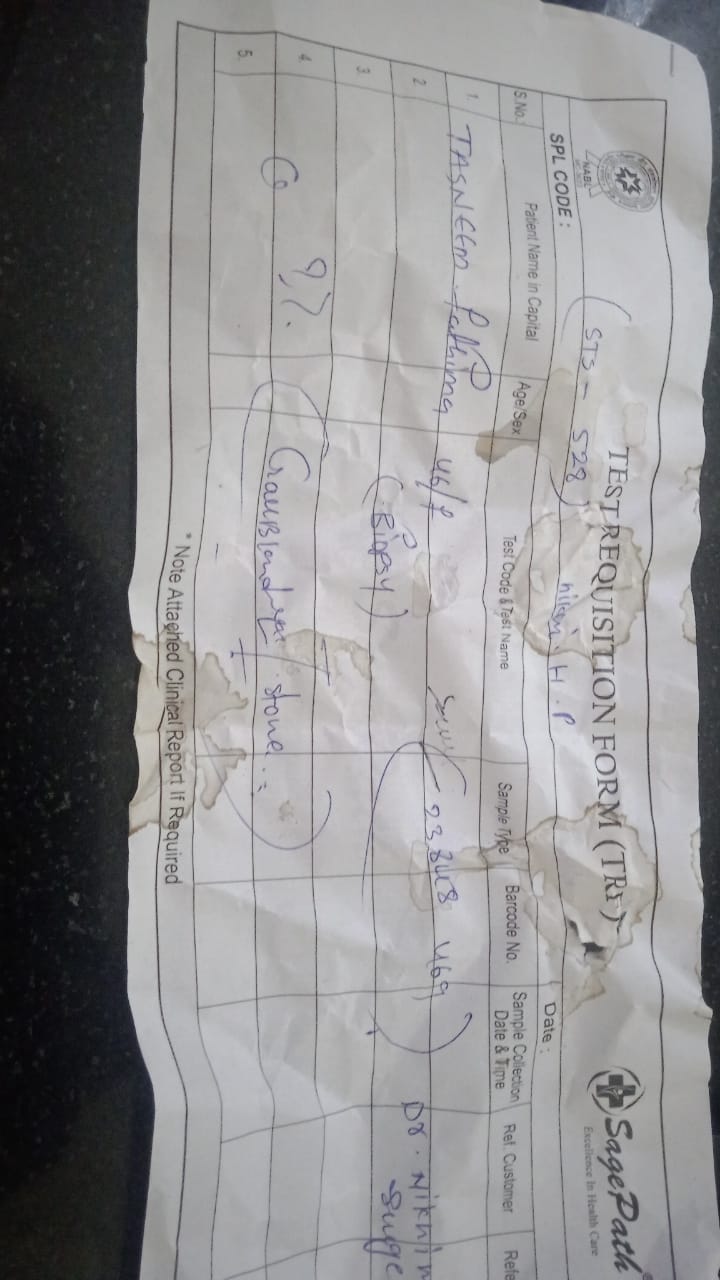 NABL
TEST REQUISITION FORM (TRF)
SagePath
Excellence In Health Care
SPL CODE :
(STS - 528)
H.P
Date :
S.No.
Patient Name in Capital
Age/Sex
Test Code & Test Name
Sample Type
Barcode No.
Sample Collection Date & Time
Ref. Customer
Refe
1.
TASNEEM fathima
46/F
Dr. Nikhin
2.
(Biopsy)
Surge
3.
4.
5.
stone
* Note Attached Clinical Report If Required